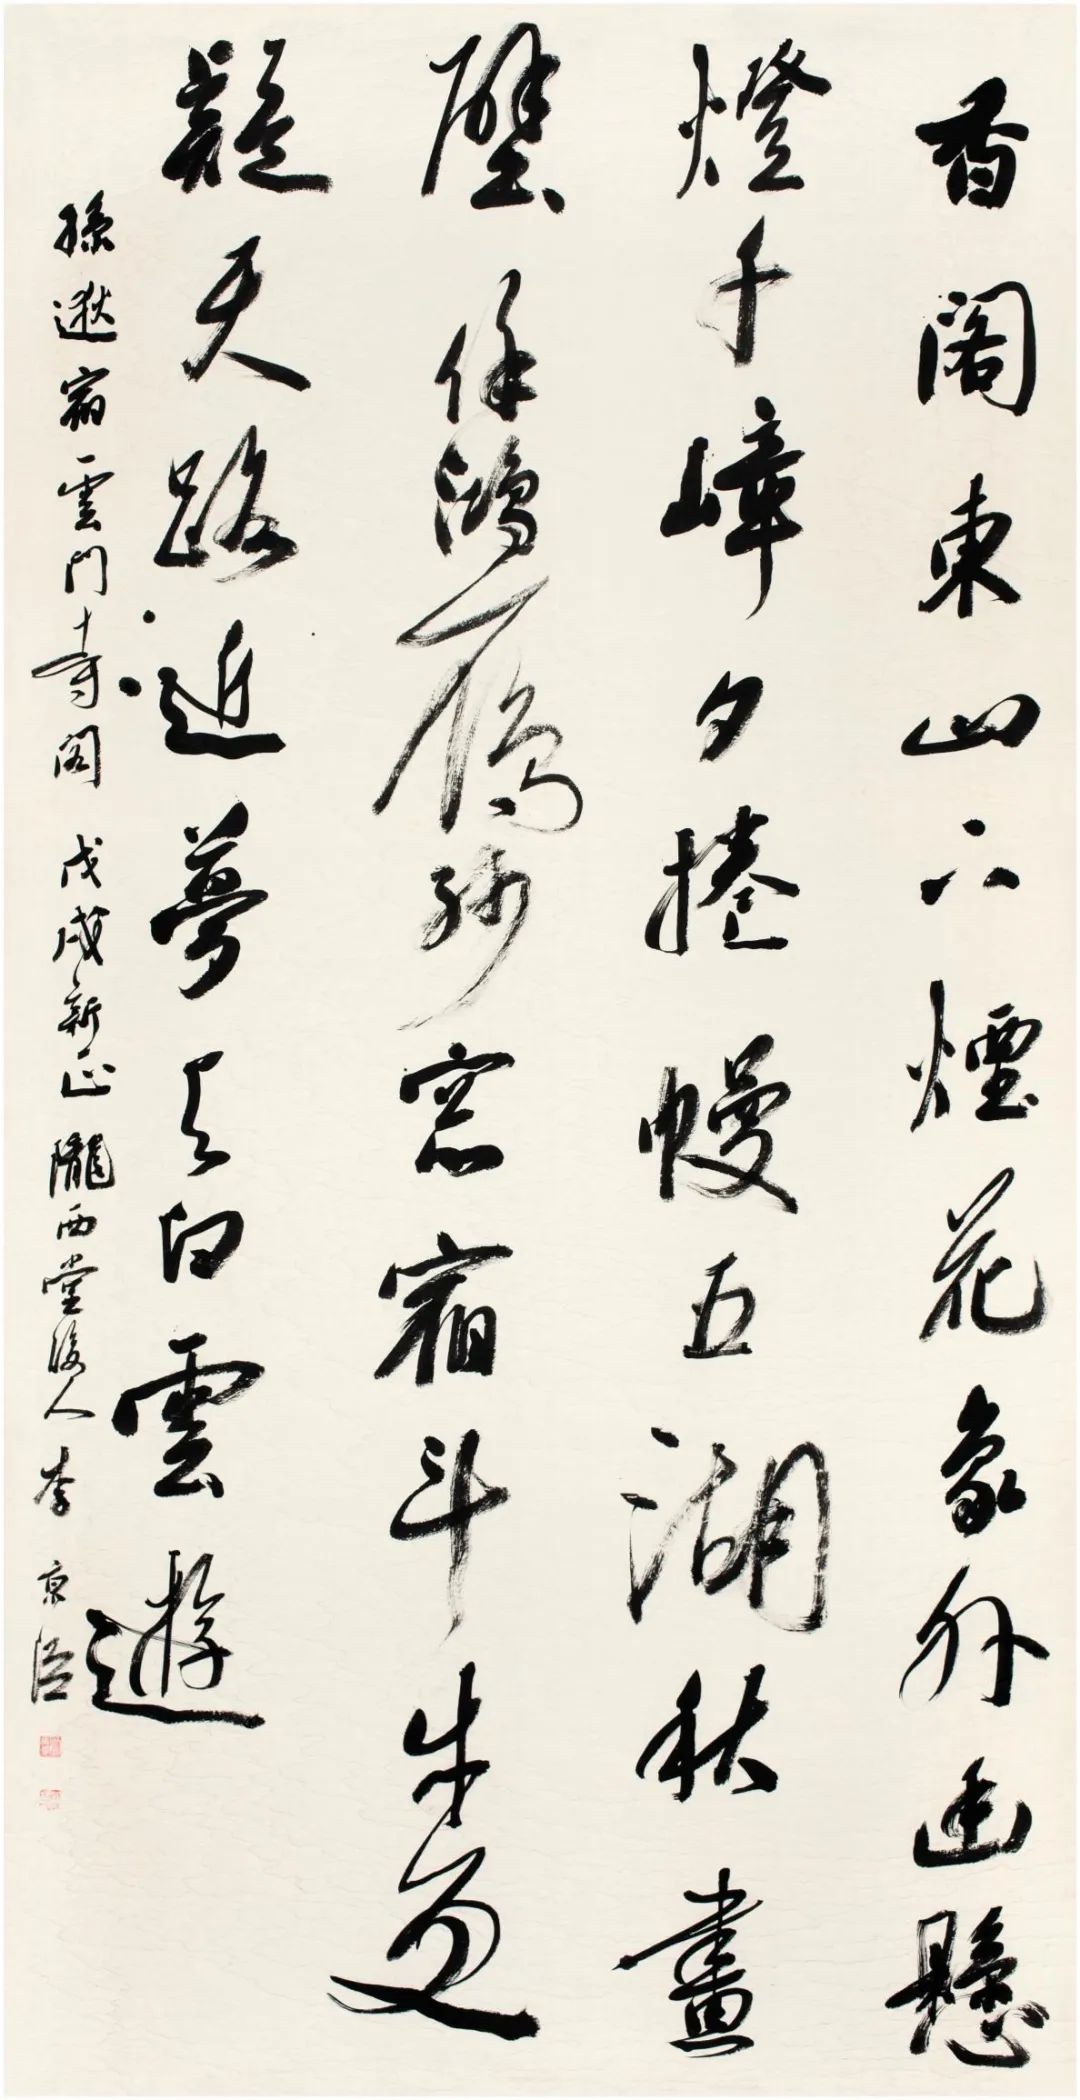 香閣東山下煙花象外幽懸
燈千嶂夕捲幔五湖秋畫
壁餘鴻鴈紗窓宿斗牛更
疑天路近夢與白雲遊
孫逖宿雲門寺閣 戊戌新正 隴西堂後人李京